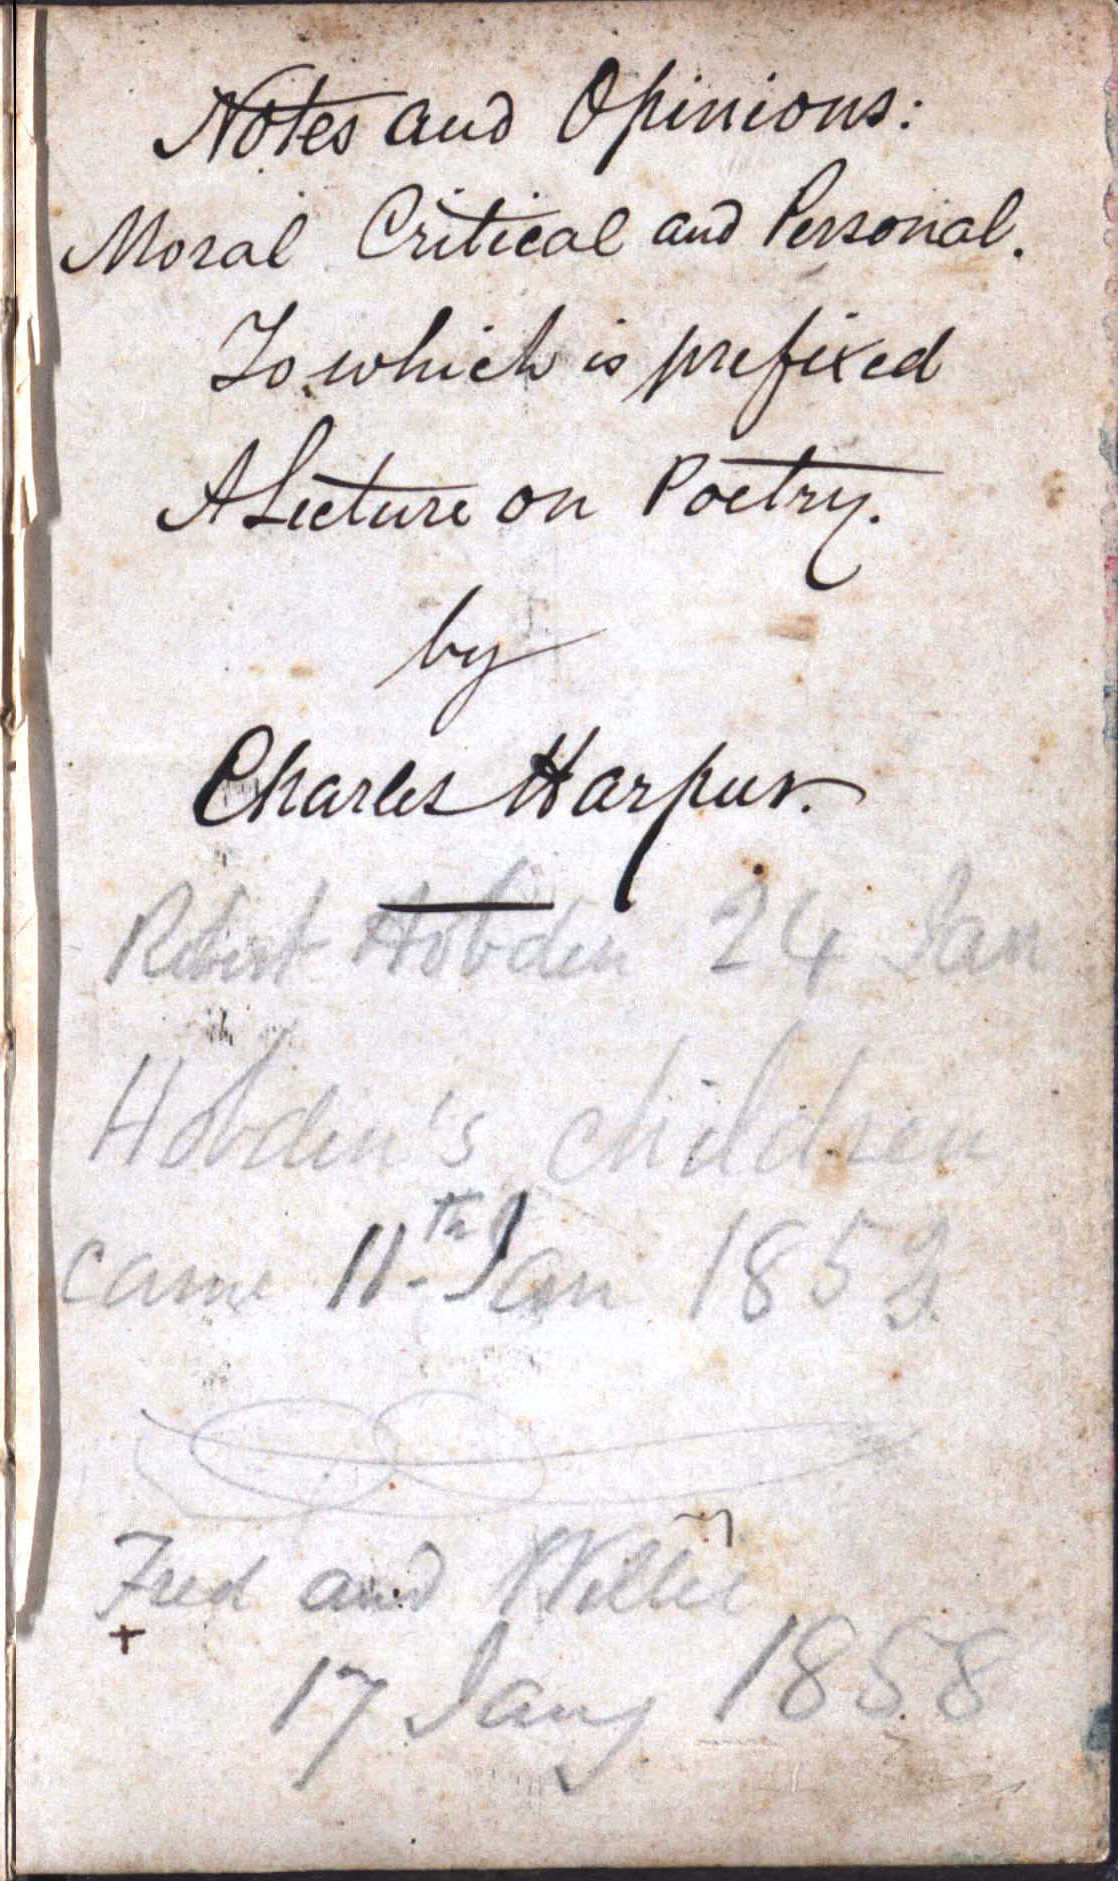 Notes and Opinions:
Moral Critical and Personal.
To which is prefixed
A Lecture on Poetry.
by
Charles Harpur.
Robert Hobden 24 Jan
Hobden's children
came 11th Jan
Fred and Willie
17 Jany 1858